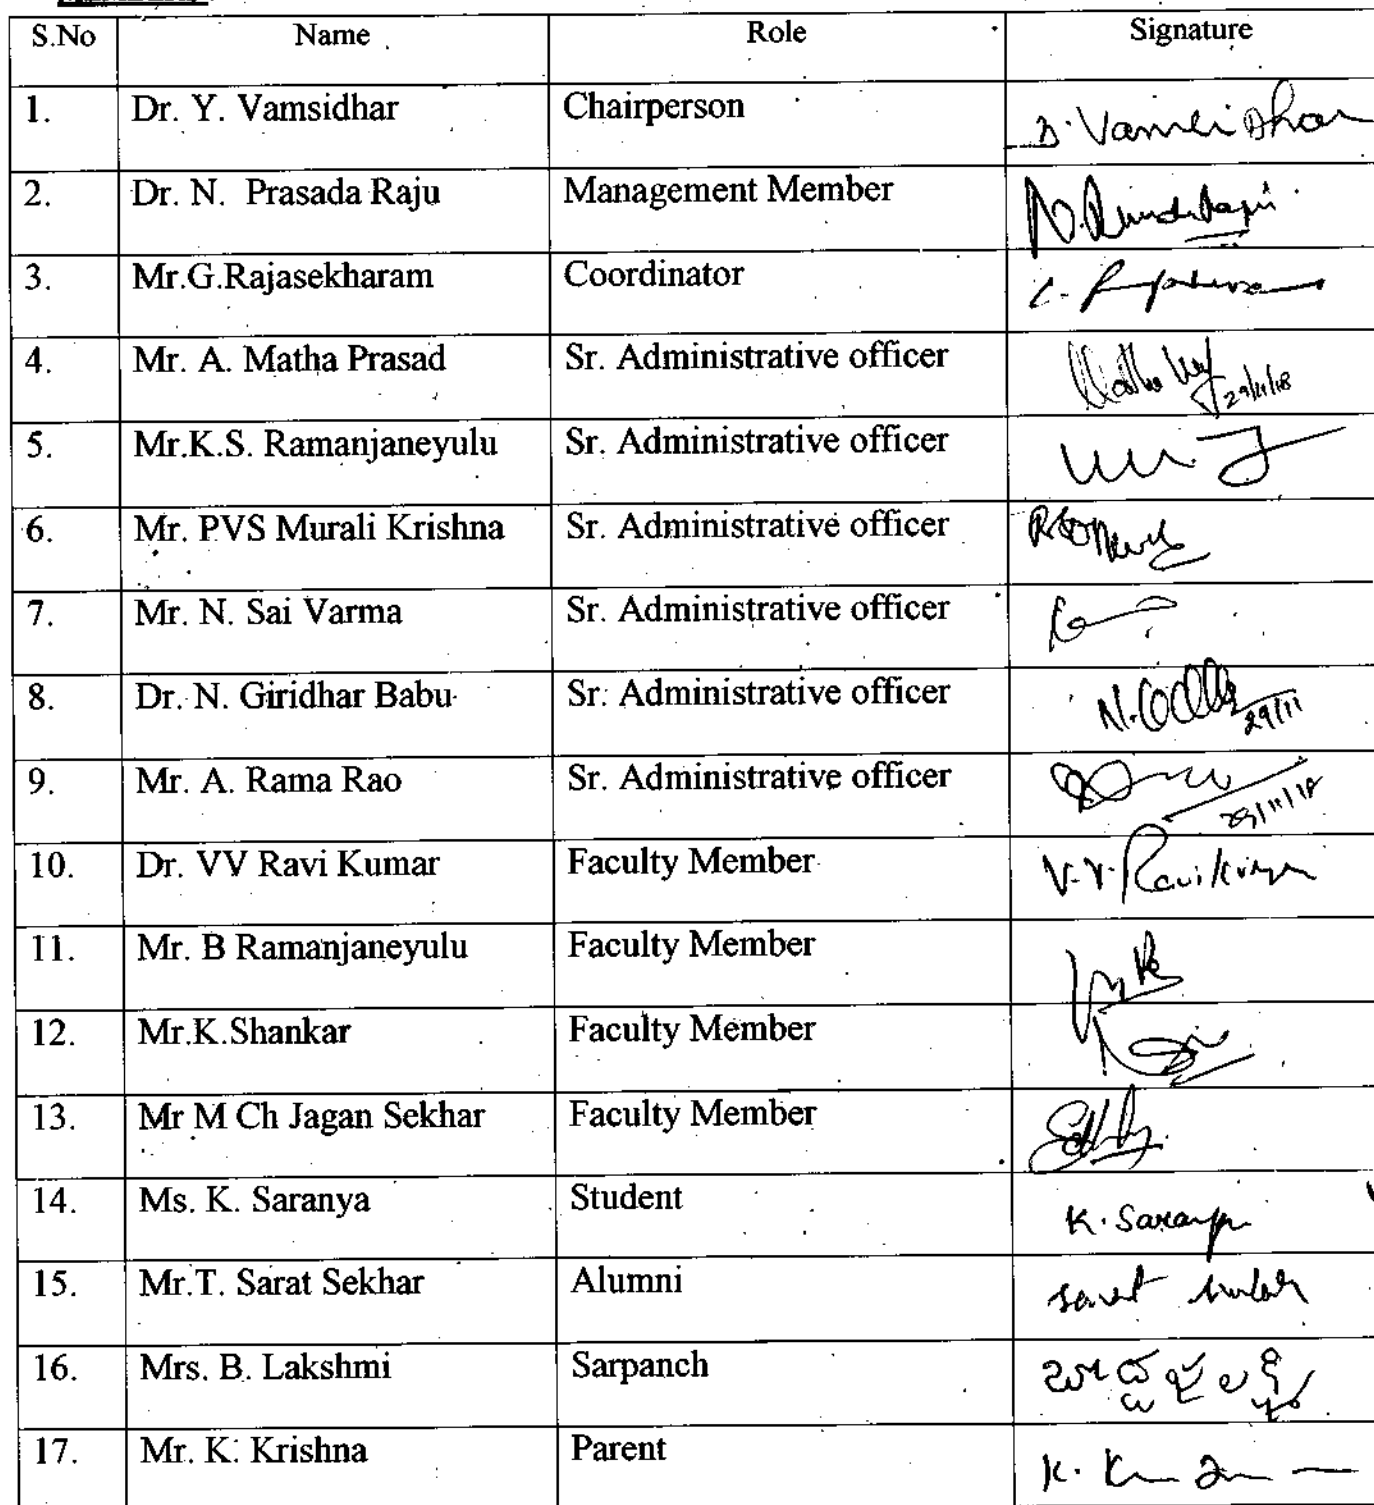 S.No Name Role Signature
1. Dr. Y. Vamsidhar Chairperson
2. Dr. N. Prasada Raju Management Member
3. Mr.G.Rajasekharam Coordinator
4. Mr. A. Matha Prasad Sr. Administrative officer 29/11/18
5. Mr.K.S. Ramanjaneyulu Sr. Administrative officer
6. Mr. PVS Murali Krishna Sr. Administrative officer
7. Mr. N. Sai Varma Sr. Administrative officer
8. Dr. N. Giridhar Babu Sr. Administrative officer 29/11
9. Mr. A. Rama Rao Sr. Administrative officer 29/11/18
10. Dr. VV Ravi Kumar Faculty Member V.V. Ravikumar
11. Mr. B Ramanjaneyulu Faculty Member
12. Mr.K.Shankar Faculty Member
13. Mr M Ch Jagan Sekhar Faculty Member
14. Ms. K. Saranya Student K. Saranya
15. Mr.T. Sarat Sekhar Alumni
16. Mrs. B. Lakshmi Sarpanch
17. Mr. K. Krishna Parent